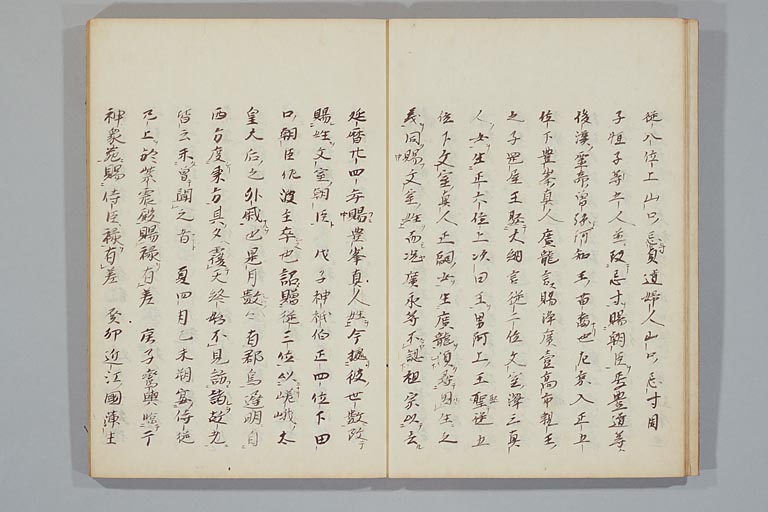 従八位上山口忌寸貞道婦人山口忌寸周
子恒子等五人並改忌寸賜朝臣焉豊道等
後漢霊帝曽孫阿知王苗裔也左京人正五
位下豊峯真人廣龍言賜浄廣壹高市親王
之子正四位王孫大納言従二位文室浄三真
人女生正六位上次田王男阿上王聖従五
位下文室真人正嗣女生廣龍須尋男生之
義同賜文室姓而况廣永等不認祖宗以去
延暦廿四年賜豊峯真人姓今據彼世数改
賜姓文室朝臣 戊子神祇伯正四位下田
口朝臣佐波主卒也詔贈従三位以嵯峨太
皇大后之外戚也是月数有郡鳥遼明自
西方度東方其久覆天終始不見訪諸故老
皆云未曽聞之者 夏四月己未朔宴侍従
已上於紫宸殿賜禄有差 庚子鸞輿臨于
神泉苑賜侍臣禄有差 癸卯近江國浄土